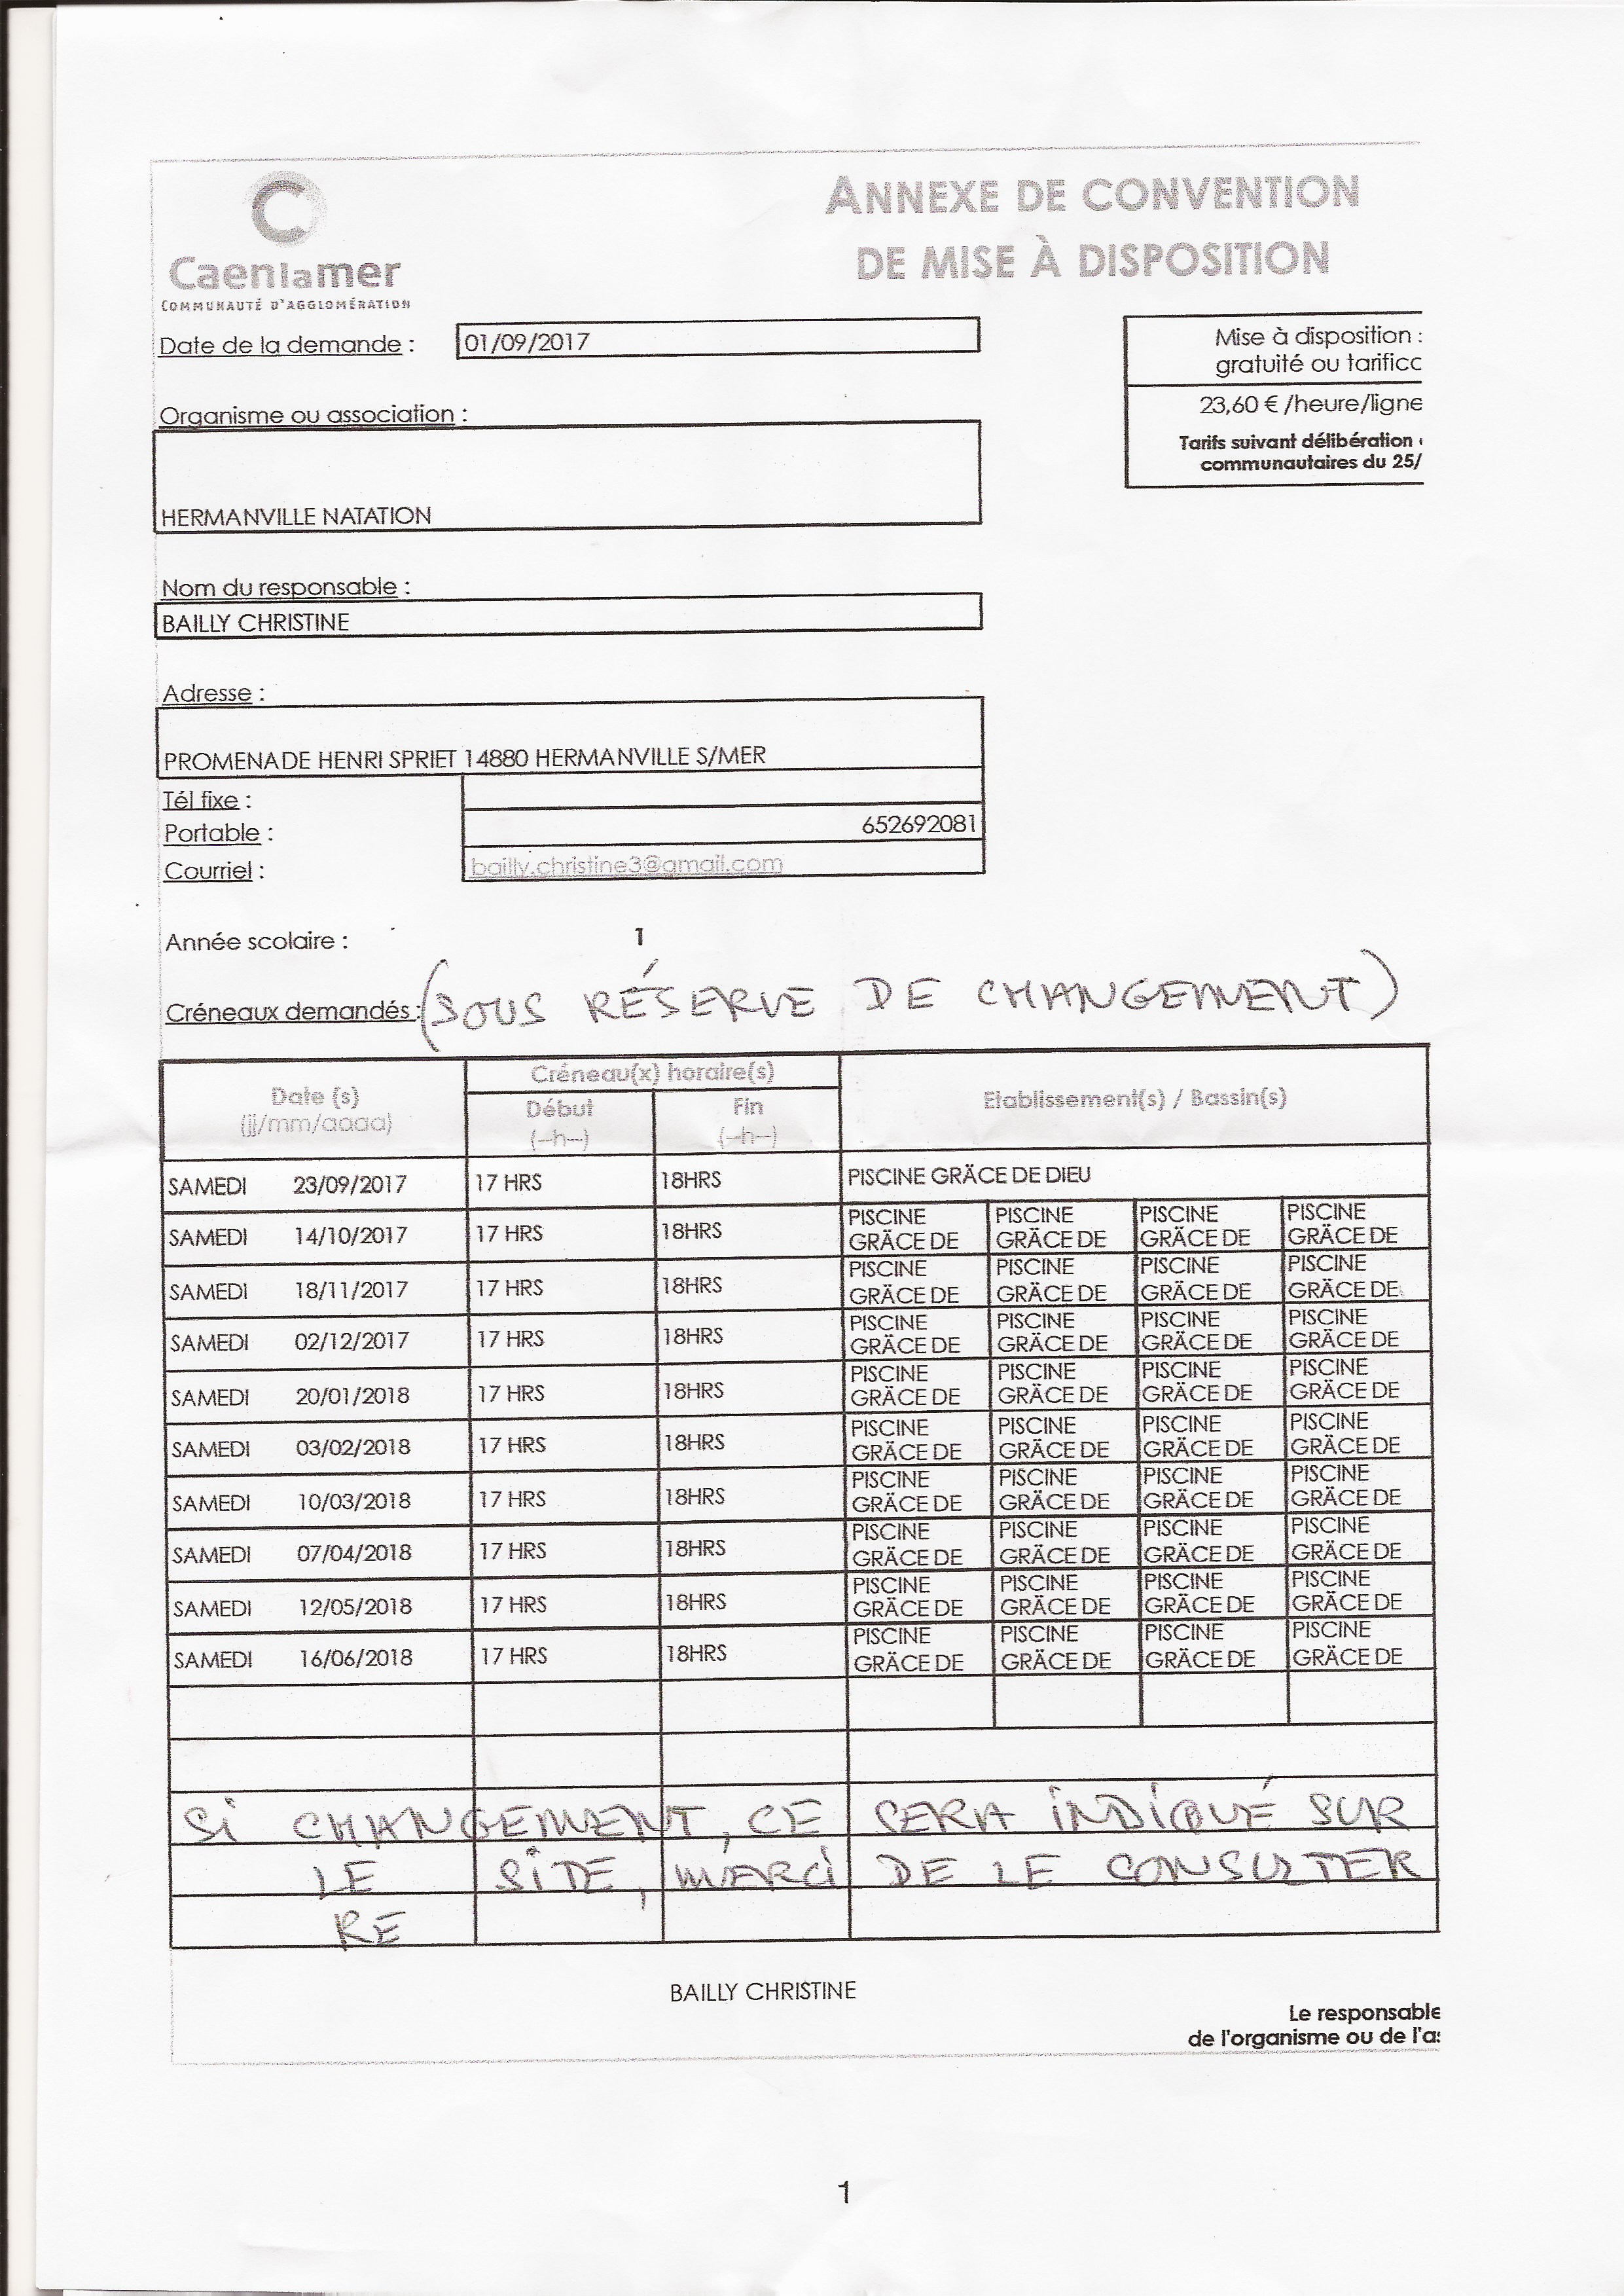 Caenlamer
COMMUNAUTÉ D'AGGLOMÉRATION
ANNEXE DE CONVENTION
DE MISE À DISPOSITION
Date de la demande : 01/09/2017
Mise à disposition :
gratuité ou tarific
23,60 € /heure/ligne
Tarifs suivant délibération
communautaires du 25/
Organisme ou association :
HERMANVILLE NATATION
Nom du responsable :
BAILLY CHRISTINE
Adresse :
PROMENADE HENRI SPRIET 14880 HERMANVILLE S/MER
Tél fixe :
Portable : 652692081
Courriel : bailly.christine3@gmail.com
Année scolaire : 1
Créneaux demandés : (SOUS RÉSERVE DE CHANGEMENT)
Date (s) Créneau(x) horaire(s) Etablissement(s) / Bassin(s)
(jj/mm/aaaa) Début Fin
(--h--) (--h--)
SAMEDI 23/09/2017 17 HRS 18HRS PISCINE GRÄCE DE DIEU
SAMEDI 14/10/2017 17 HRS 18HRS PISCINE GRÄCE DE PISCINE GRÄCE DE PISCINE GRÄCE DE PISCINE GRÄCE DE
SAMEDI 18/11/2017 17 HRS 18HRS PISCINE GRÄCE DE PISCINE GRÄCE DE PISCINE GRÄCE DE PISCINE GRÄCE DE
SAMEDI 02/12/2017 17 HRS 18HRS PISCINE GRÄCE DE PISCINE GRÄCE DE PISCINE GRÄCE DE PISCINE GRÄCE DE
SAMEDI 20/01/2018 17 HRS 18HRS PISCINE GRÄCE DE PISCINE GRÄCE DE PISCINE GRÄCE DE PISCINE GRÄCE DE
SAMEDI 03/02/2018 17 HRS 18HRS PISCINE GRÄCE DE PISCINE GRÄCE DE PISCINE GRÄCE DE PISCINE GRÄCE DE
SAMEDI 10/03/2018 17 HRS 18HRS PISCINE GRÄCE DE PISCINE GRÄCE DE PISCINE GRÄCE DE PISCINE GRÄCE DE
SAMEDI 07/04/2018 17 HRS 18HRS PISCINE GRÄCE DE PISCINE GRÄCE DE PISCINE GRÄCE DE PISCINE GRÄCE DE
SAMEDI 12/05/2018 17 HRS 18HRS PISCINE GRÄCE DE PISCINE GRÄCE DE PISCINE GRÄCE DE PISCINE GRÄCE DE
SAMEDI 16/06/2018 17 HRS 18HRS PISCINE GRÄCE DE PISCINE GRÄCE DE PISCINE GRÄCE DE PISCINE GRÄCE DE
Si CHANGEMENT, CE SERA INDIQUÉ SUR
LE SITE, MERCI DE LE CONSULTER
RE
BAILLY CHRISTINE
Le responsable
de l'organisme ou de l'a
1